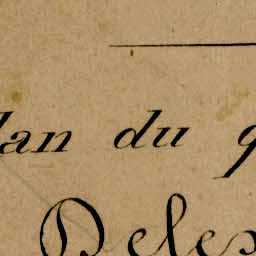 lan du q
Delex